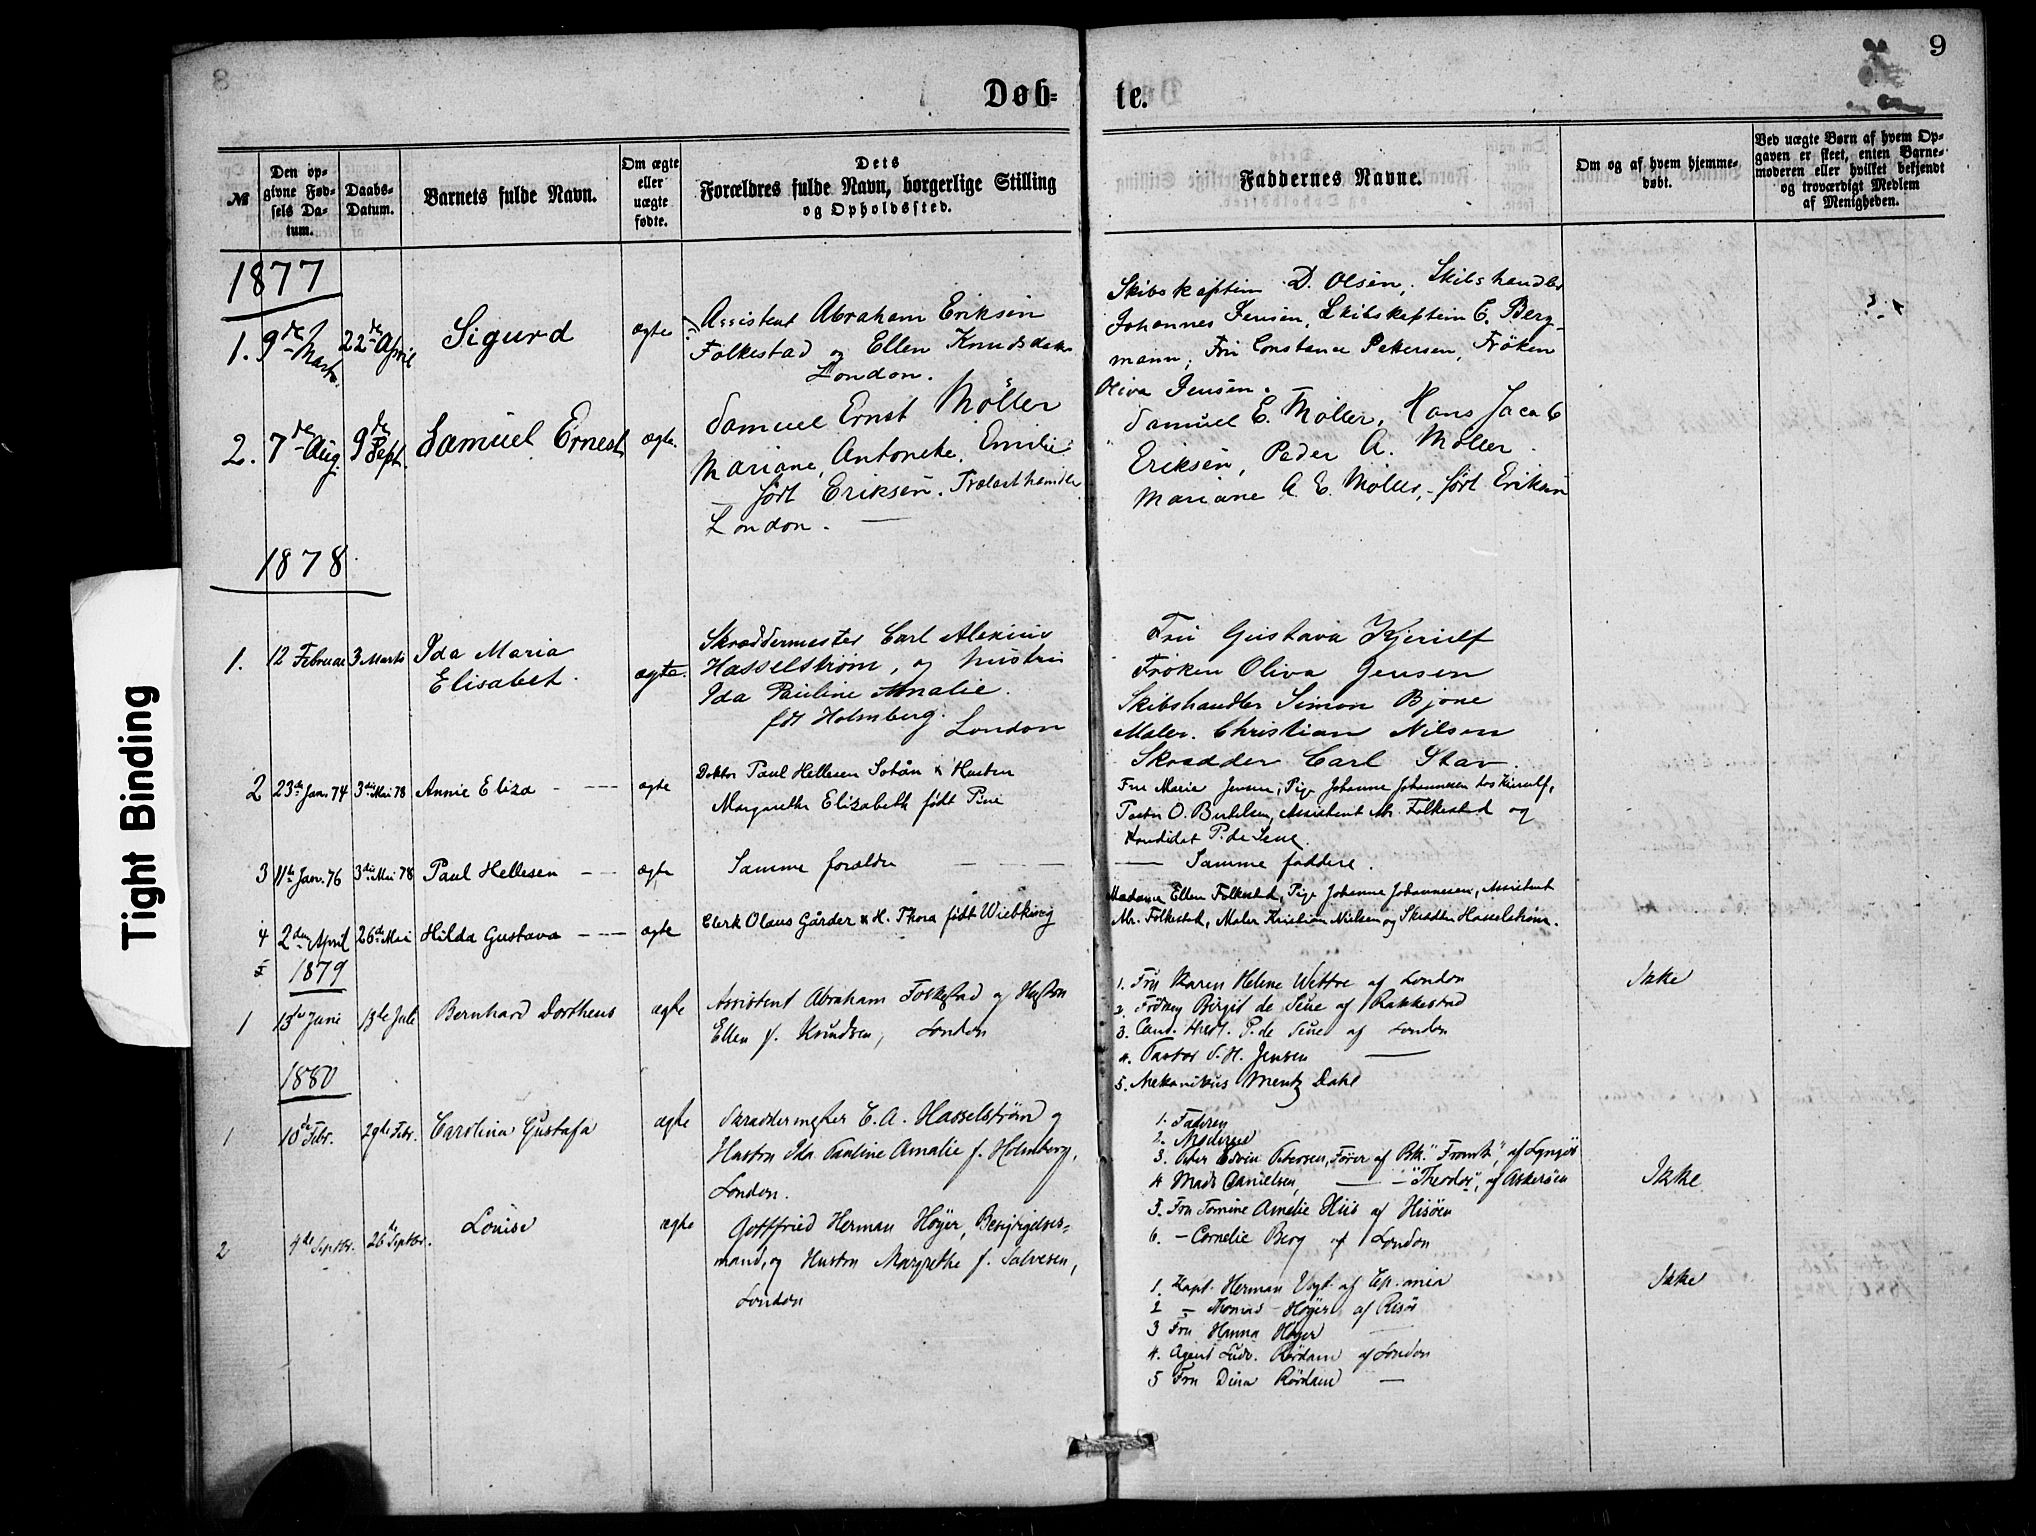 8
9
Døb-
te.
№
Den op-
givne Fød-
sels Da-
tum.
Daabs-
Datum.
Barnets fulde Navn.
Om ægte
eller
uægte
fødte.
Dets
Forældres fulde Navn, borgerlige Stilling
og Opholdssted.
Faddernes Navne.
Om og af hvem hjemme-
døbt.
Ved uægte Børn af hvem Op-
gaven er skeet, enten Barne-
moderen eller hvilket bekjendt
og troværdigt Medlem
af Menigheden.
1877
1. 9de Marts. 22de April Sigurd ægte
Assistent Abraham Eriksen
Folkestad og Ellen Knudsdatter
London.
Skibskaptein D. Olsen, Skibshandler
Johannes Jensen, Skibskaptein C. Berg-
mann, Fru Constance Petersen, Frøken
Oliva Jensen.
2. 7de Aug. 9de Sept. Samuel Ernest ægte.
Samuel Ernst Möller
Mariane, Antonette, Emilie
født Eriksen. Trælasthandler
London.
Samuel E. Möller, Hans Jacob
Eriksen, Peder A. Möller
Mariane A. E. Möller, født Eriksen
1878
1. 12 Februar 3 Marts Ida Maria
Elisabet. ægte.
Skræddermester Carl Alexius
Hasselstrøm, og hustru
Ida Pauline Amalie.
fdt Holmberg. London
Fru Gustava Kjerulf
Frøken Oliva Jensen
Skibshandler Simon Bjone
Maler. Christian Nilsen
Skrædder Carl Stav.
2 23de Janr. 74 3die Mai 78 Annie Eliza ægte
Doktor Paul Hellesen & Hustru
Margrethe Elizabeth født
Frue Maria Jensen, Pige Johanne Johannesen hos Kjerulf,
Pastor O. Bertelsen, Assistent Abr. Folkestad og
Kandidat P. de Seue.
3 11te Janr. 76 3die Mai 78 Paul Hellesen ægte
Samme forældre
Samme faddere.
4 2den April 26de Mai Hilda Gustava ægte
Clerk Olaus Gårder & H. Thora født
Madame Ellen Folkestad, Pige Johanne Johannesen, Assistent
Abr. Folkestad, Maler Kristian Nielsen og Skrædder Hasselstrøm.
1879
1 13de Juni 13de Juli Bernhard Dortheus ægte
Assistent Abraham Folkestad og Hustru
Ellen f. Knudsen, London
1. Fru Karen Helene Wettre af London
2. Frøken Birgit de Seue af Rakkestad
3. Cand. theol. P. de Seue af London
4. Pastor S. H. Jensen
5. Mekanikus Mentz Dahl
Ikke
1880
1 10de Febr. 29de Febr. Carolina Gustafa ægte
Skræddermester C. A. Hasselstrøm og
Hustru Ida Pauline Amalie f. Holmberg,
London.
1. Faderen
2. Moderen
3. Peter Edvin Petersen, Fører af Bk. af Lyngør
4 Mads Danielsen, "Theodor", af Askerøen
5. Fru Tomine Amelie Hiis af Hisøen
6. - Cornelie Berg af London
Ikke
2 4de Septbr. 26de Septbr. Louise ægte
Gottfried Herman Høyer, Besigtigelses-
mand, og Hustru Margrethe f. Salvesen,
London
1. Kapt. Herman Vogt af
2 - Thomas Høyer af Risør
3 Fru Hanna Høyer
4. Agent Ludv. Rørdam af London
5 Fru Dina Rørdam
Ikke
Tight Binding